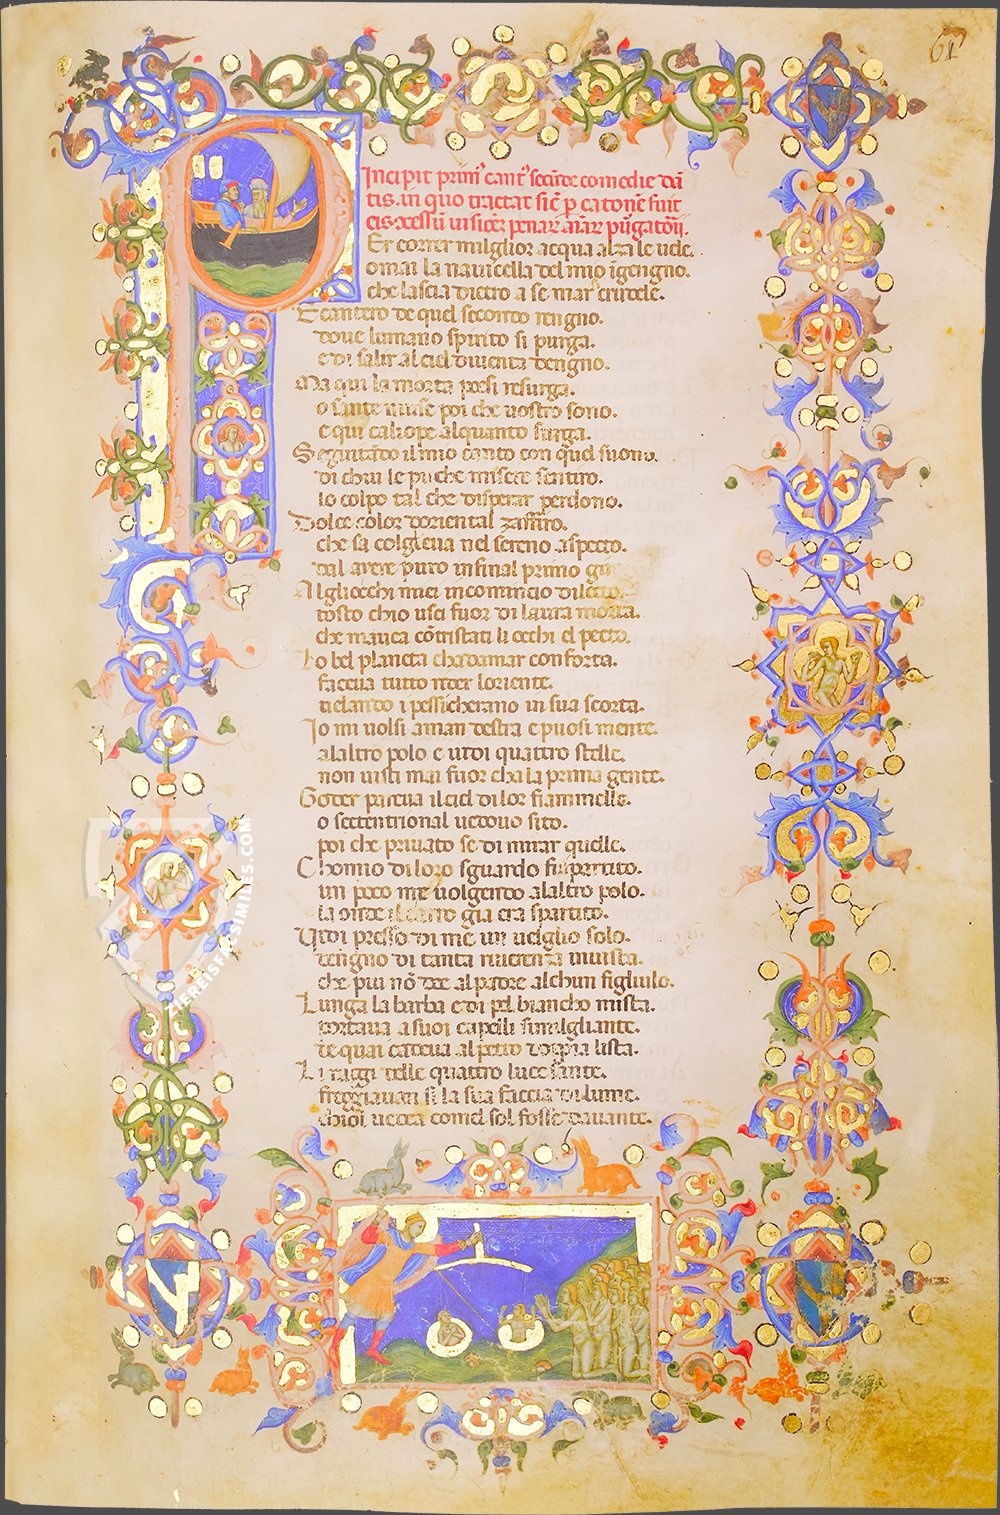 61
Incipit prim' cant' secūde comedie dā
tis. in quo tractat sic' p catonē fuit
P
Er correr milglior acqua alza le uele.
omai la nauicella del mio īgengno.
che lascia dietro a se mar crudele.
E cantero de quel secondo rengno.
doue lumano spirito si purga.
e di salir al ciel diuenta dengno.
Ma qui la morta poesi resurga.
o sante muse poi che uostro sono.
e qui caliope alquanto surga.
Seguitādo il mio canto con quel suono.
di chui le piche misere sentiro.
lo colpo tal che disperar perdono.
Dolce color doriental zaffiro.
che sa colglieua nel sereno aspecto.
dal aere puro infinal primo
Algliocchi miei incomincio dilecto.
tosto chio usci fuor di laura morta.
che mauea cōtristati li occhi el pecto.
Lo bel planeta chadamar conforta.
faceua tutto rider loriente.
uelando i pessi cherano in sua scorta.
Io mi uolsi a man destra e puosi mente.
alaltro polo e uidi quattro stelle.
non uisti mai fuor cha la prima gente.
Goder pareua il ciel di lor fiammelle.
o settentrional uedouo sito.
poi che priuato se di mirar quelle.
Chomio di loro sguardo fu partito.
un poco me uolgendo alaltro polo.
la onde il carro gia era spartito.
Uidi presso di me un ueglio solo.
dengno di tanta riuerenza in uista.
che piu nō dee al padre alchun figliulo.
Lunga la barba e di pel biancho mista.
portaua a suoi capelli simigliante.
de quai cadeua al petto doppia lista.
Li raggi delle quattro luce sante.
freggiauan si la sua faccia di lume.
chioi uedea comel sol fosse dauante.
ZIEREISFACSIMILES.COM